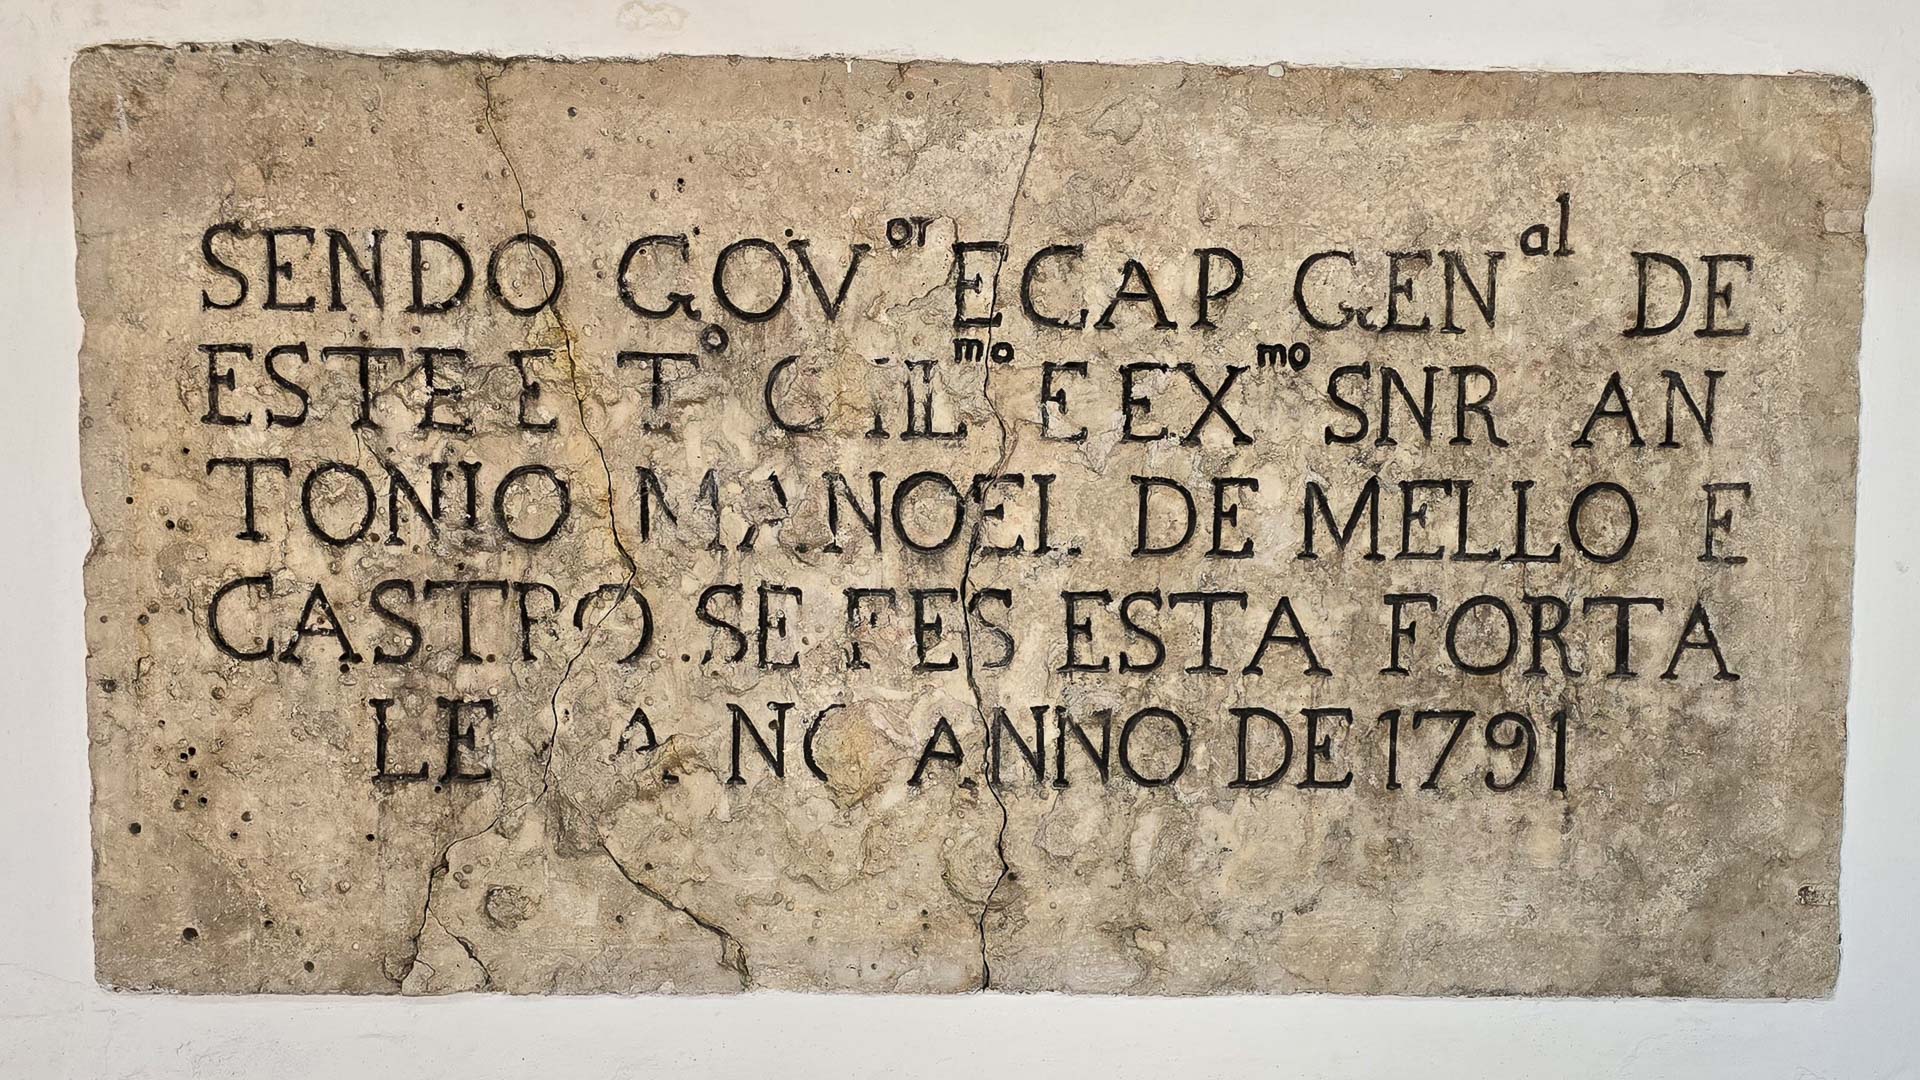 SENDO GOVor E CAP GENal DE
ESTE E To O ILmo E EXmo SNR AN
TONIO MANOEL DE MELLO E
CASTRO SE FES ESTA FORTA
LE A NO ANNO DE 1791